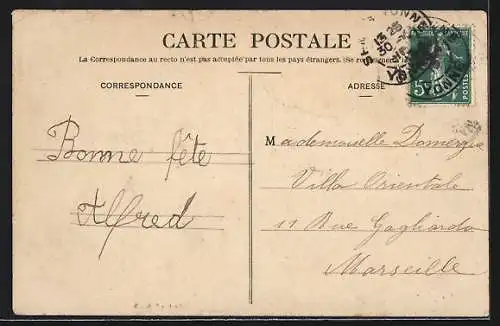 CARTE POSTALE
La Correspondance au recto n'est pas acceptée par tous les pays étrangers. (Se
CORRESPONDANCE
ADRESSE
Bonne fête
Alfred
Mademoiselle Domergue
Villa Orientale
11 Rue Gagliardo
Marseille
YONNE
13 25
30
5
POSTES